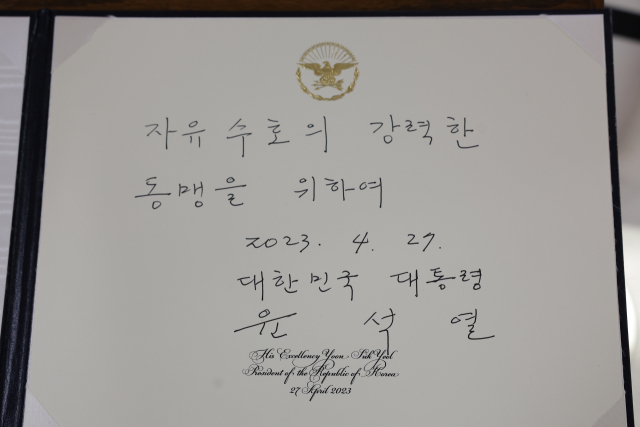 자유 수호의 강력한
동맹을 위하여
2023. 4. 27.
대한민국 대통령
윤 석 열
His Excellency Yoon Suk Yeol
President of the Republic of Korea
27 April 2023